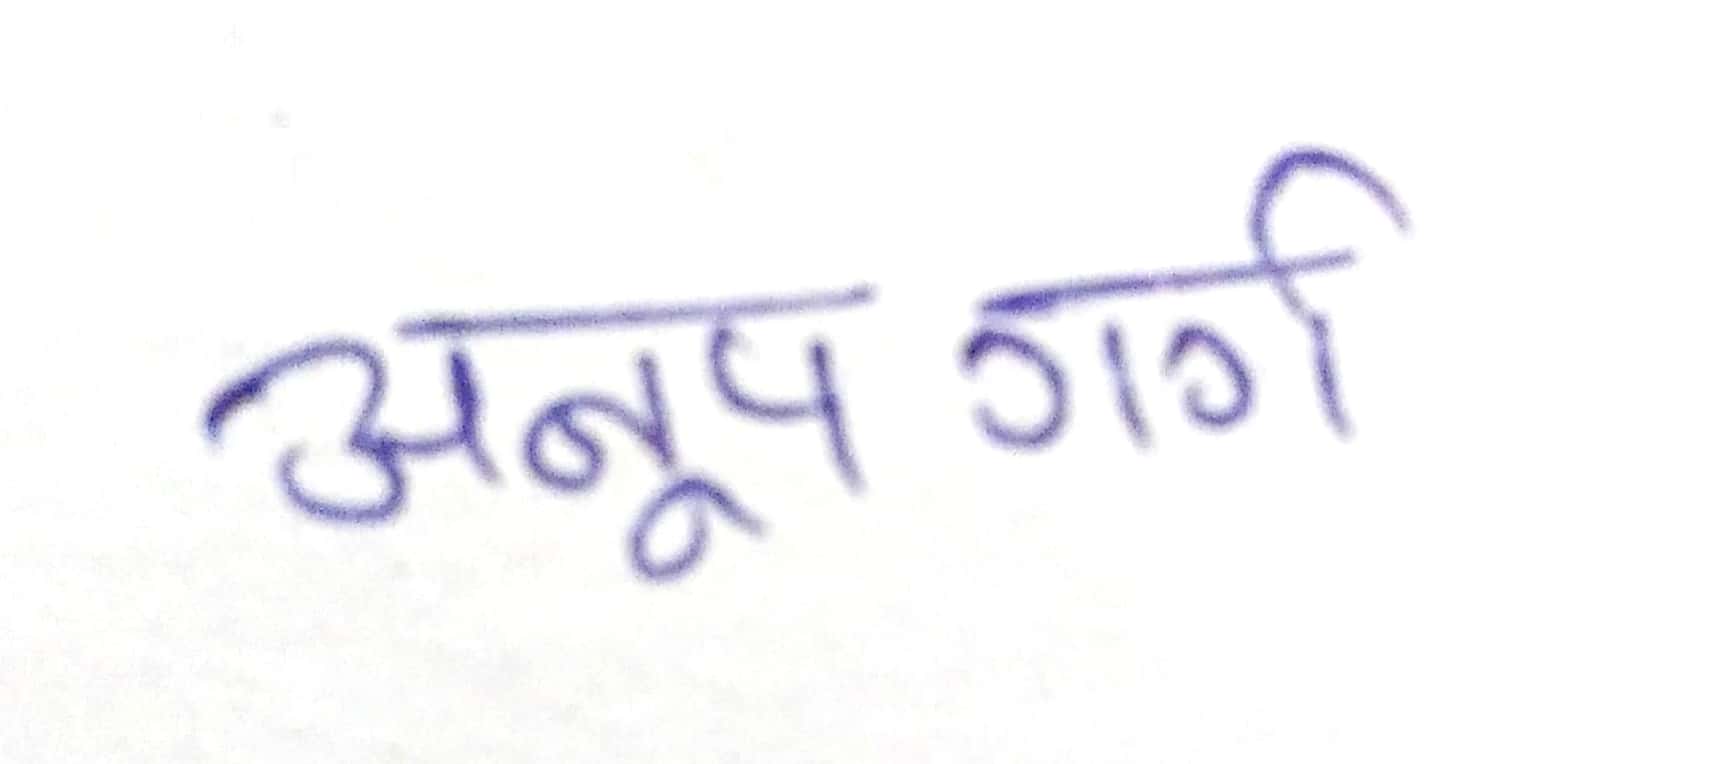 अनूप गर्ग